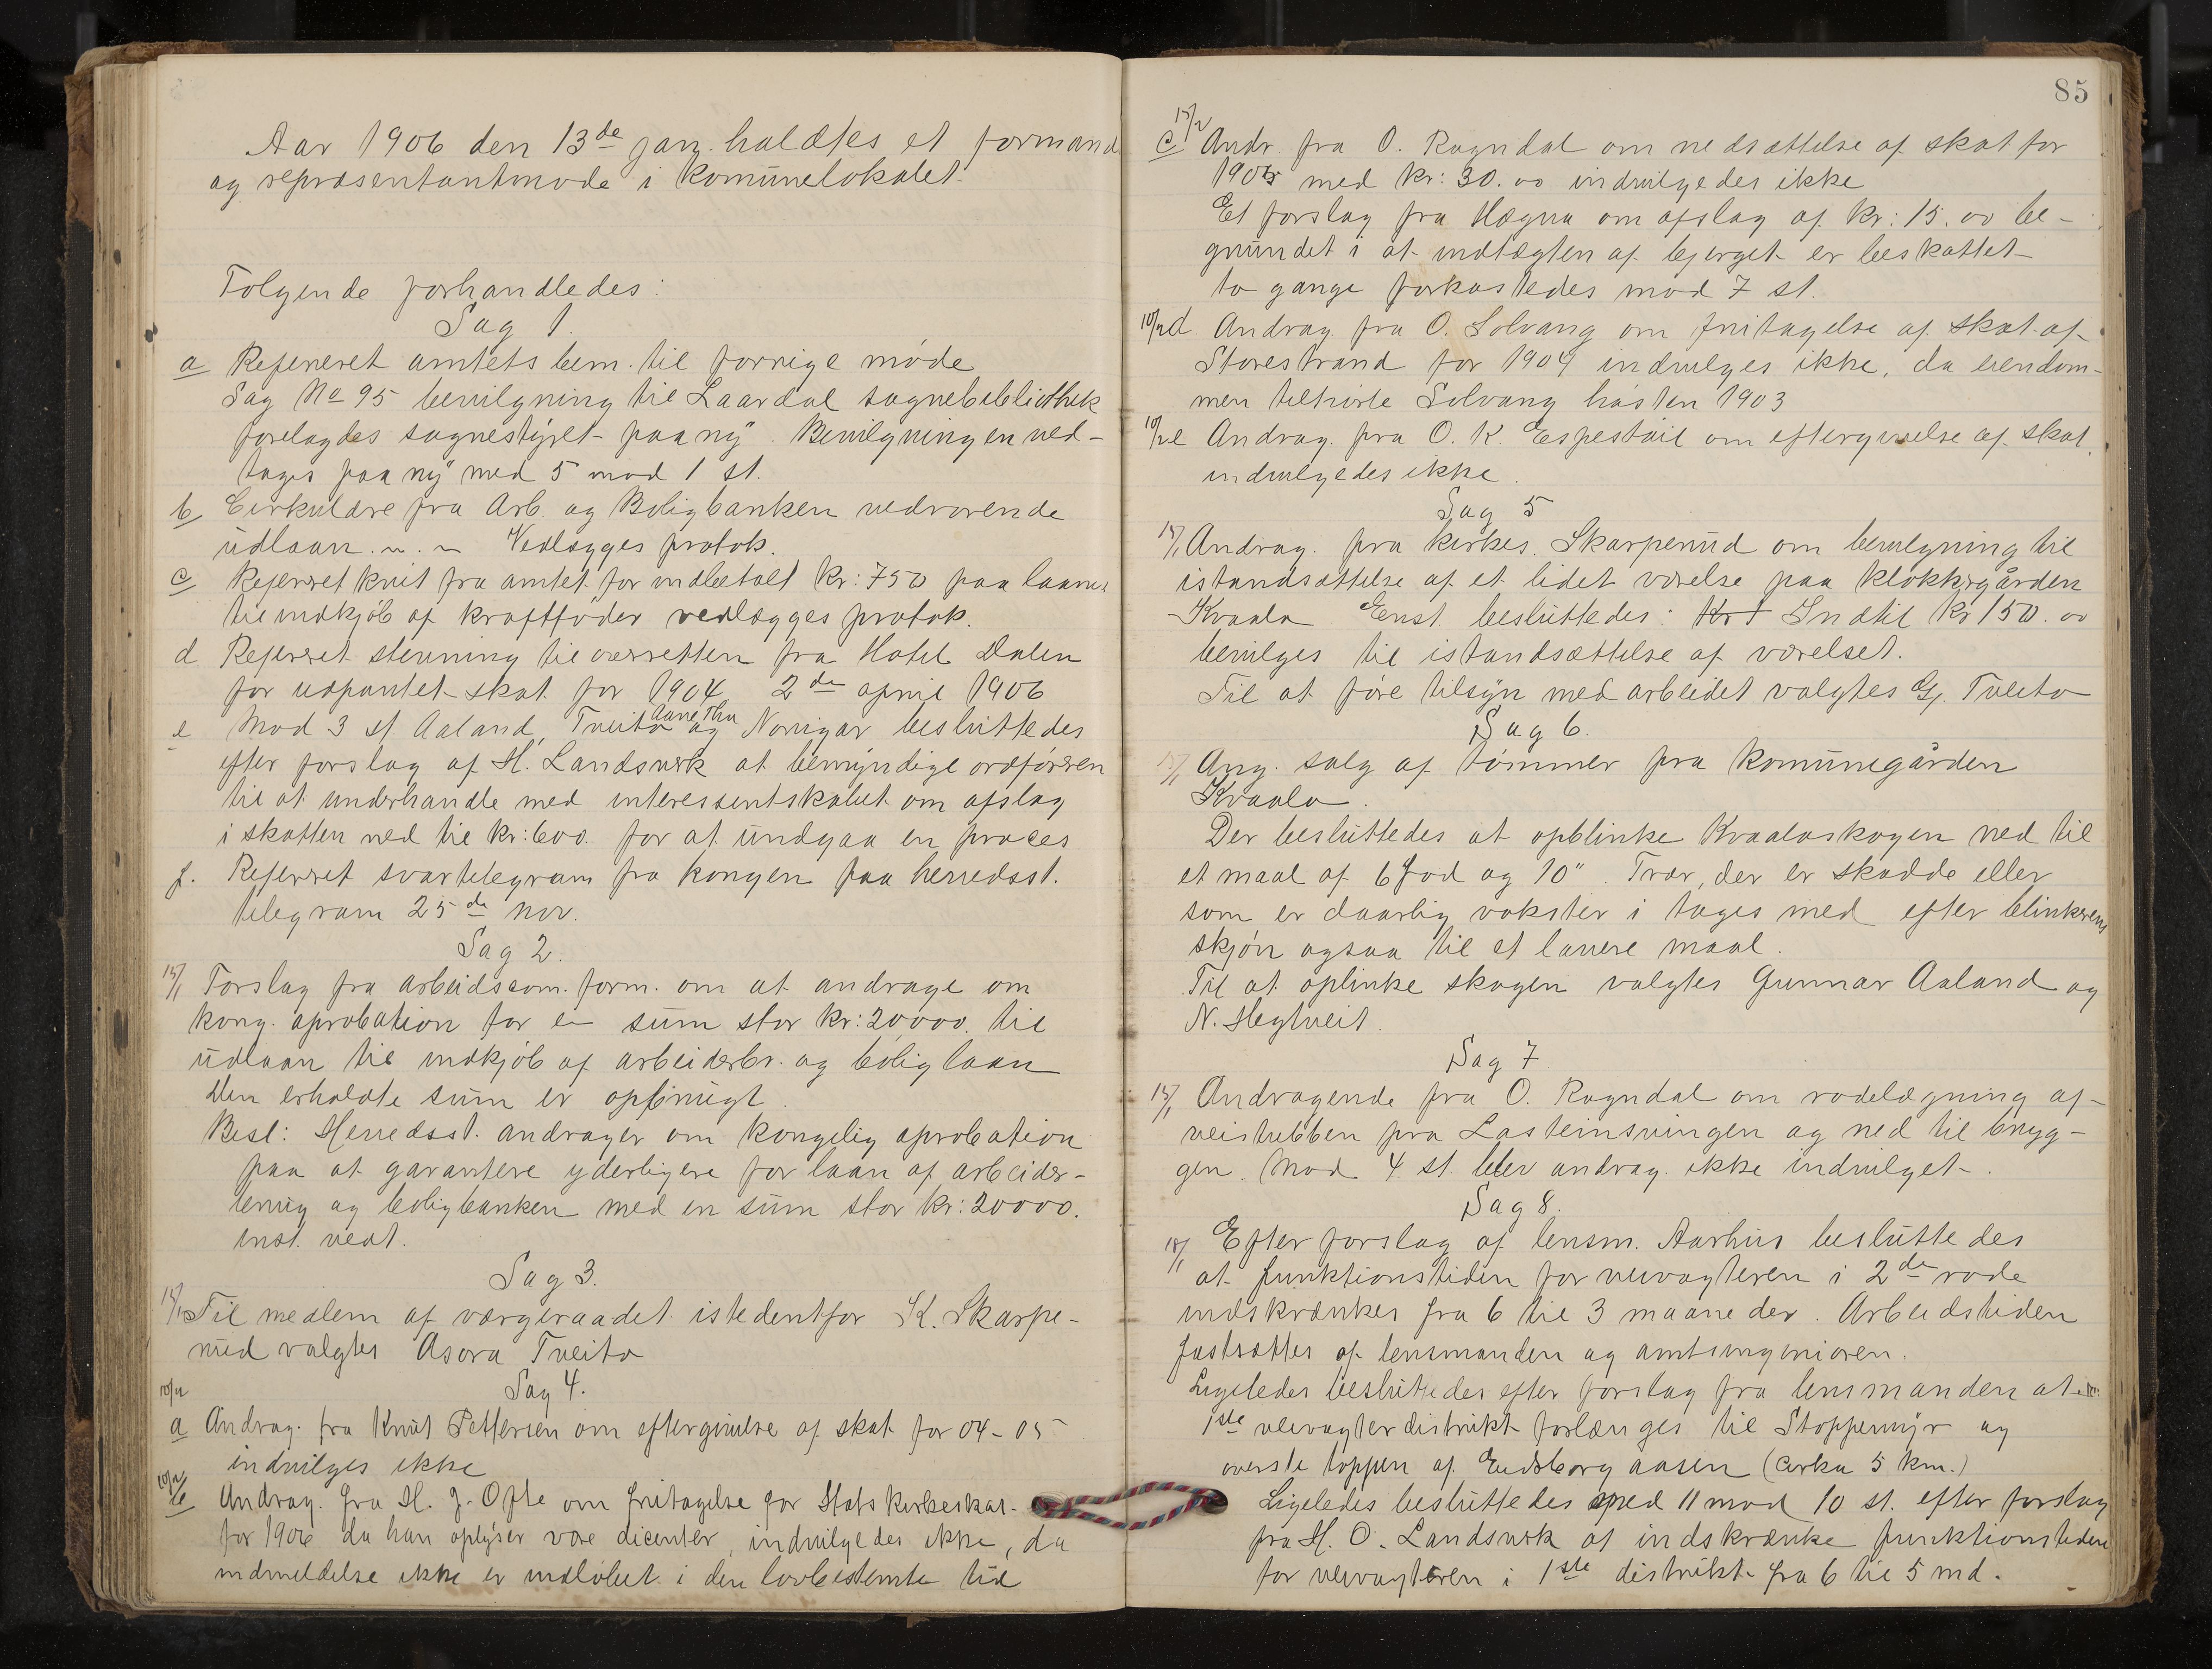 Aar 1906 den 13de jan. holdtes et formand
og repræsentantmøde i komünelokalet
Følgende forhandledes:
Sag 1.
a Refereret amtets bem. til forrige møde
Sag No 95 bevilgning til Laardal sognebibliothek
forelagdes sognestyret paa ny. Bevilgningen ved-
tages paa ny med 5 mod 1 st.
b Cirkulære fra Arb. og Boligbanken vedrørende
üdlaan. Vedlægges protok.
c Referret kvit fra amtet for indbetalt Kr: 750 paa laanet
til indkjøb af kraftfoder vedlægges protok.
d Referret stevning til overretten fra Hotel Dalen
for udpantet skat for 1904 2de april 1906
e Mod 3 st. Aaland, Tveito og Norigar beslüttedes
efter forslag af H. Landsverk at bemyndige ordføreren
til at ünderhandle med interessentskabet om afslag
i skatten ned til kr: 600. for at ündgaa en proces
f. Referret svartelegram fra kongen paa herredsst.
telegram 25de nov.
Sag 2.
15/1 Forslag fra arbeidscom. form. om at andrage om
kong. aprobation for en süm stor kr: 20,000. til
üdlaan til indkjøb af arbeiderbr. og boliglaan
Den erholdte süm er opbrügt.
Besl: Herredsst. andrager om kongelig aprobation
paa at garantere yderligere for laan af arbeider-
brüg og boligbanken med en süm stor kr: 20000.
enst. vedt.
Sag 3.
15/1 Til medlem af værgeraadet istedentfor K. Skarpe-
nüd valgtes Asora Tveito
Sag 4.
10/2
a Andrag. fra Knut Pettersen om eftergivelse af skat for 04-05
indvilges ikke
10/2
b Andrag. fra H. J. Ofte om fritagelse for Statskirkeskat
for 1906 da han oplyser være dicenter, indvilgedes ikke, da
indmeldelse ikke er indløbet i den lovbestemte tid
85
15/2
c Andr. fra O. Rogndal om nedsættelse af skat for
1905 med kr: 30.00 indvilgedes ikke
Et forslag fra Hægna om afslag af kr: 15.00 be-
gründet i at indtægten af bjerget er beskattet
to gange forkastedes mod 7 st.
10/2 d Andrag. fra O. Solvang om fritagelse af skat af
Storestrand for 1904 indvilges ikke, da eiendom-
men tilhørte Solvang høsten 1903
10/2 e Andrag. fra O. K. Espestøil om eftergivelse af skat.
indvilgedes ikke.
Sag 5
15/1 Andrag. fra kirkes. Skarpenüd om bevilgning til
istandsættelse af et lidet værelse paa klokkergården
Kvaala Enst. beslüttedes: Kr 1 Indtil kr 150.00
bevilges til istandsættelse af værelset.
Til at føre tilsyn med arbeidet valgtes G. Tveito
Sag 6.
15/1 Ang. salg af tømmer fra komünegården
Kvaala.
Der beslüttedes at opblinke Kvaalaskogen ned til
et maal af 6 fod og 10". Trær, der er skadde eller
som er daarlig vokster i tages med efter blinkerens
skjøn ogsaa til et lavere maal.
Til at oplinke skogen valgtes Gunnar Aaland og
N. Hegtveit.
Sag 7
15/1 Andragende fra O. Rogndal om rodelægning af
veistubben fra Lasteinsvingen og ned til bryg-
gen. Mod 4 st. blev andrag. ikke indvilget.
Sag 8.
18/1 Efter forslag af lensm. Aarhus beslüttedes
at funktionstiden for veivogteren i 2de rode
indskrænkes fra 6 til 3 maaneder. Arbeidstiden
fastsættes af lensmanden og amtsingeniøren.
Ligeledes beslüttedes efter forslag fra lensmanden at
1ste veivogterdistrikt forlænges til Stoppemyr og
øverste toppen af Eidsborgaasen (cirka 5 km.)
Ligeledes beslüttedes med 11 mod 10 st. efter forslag
fra H. O. Landsverk at indskrænke funktionstiden
for veivogteren i 1ste distrikt fra 6 til 5 md.